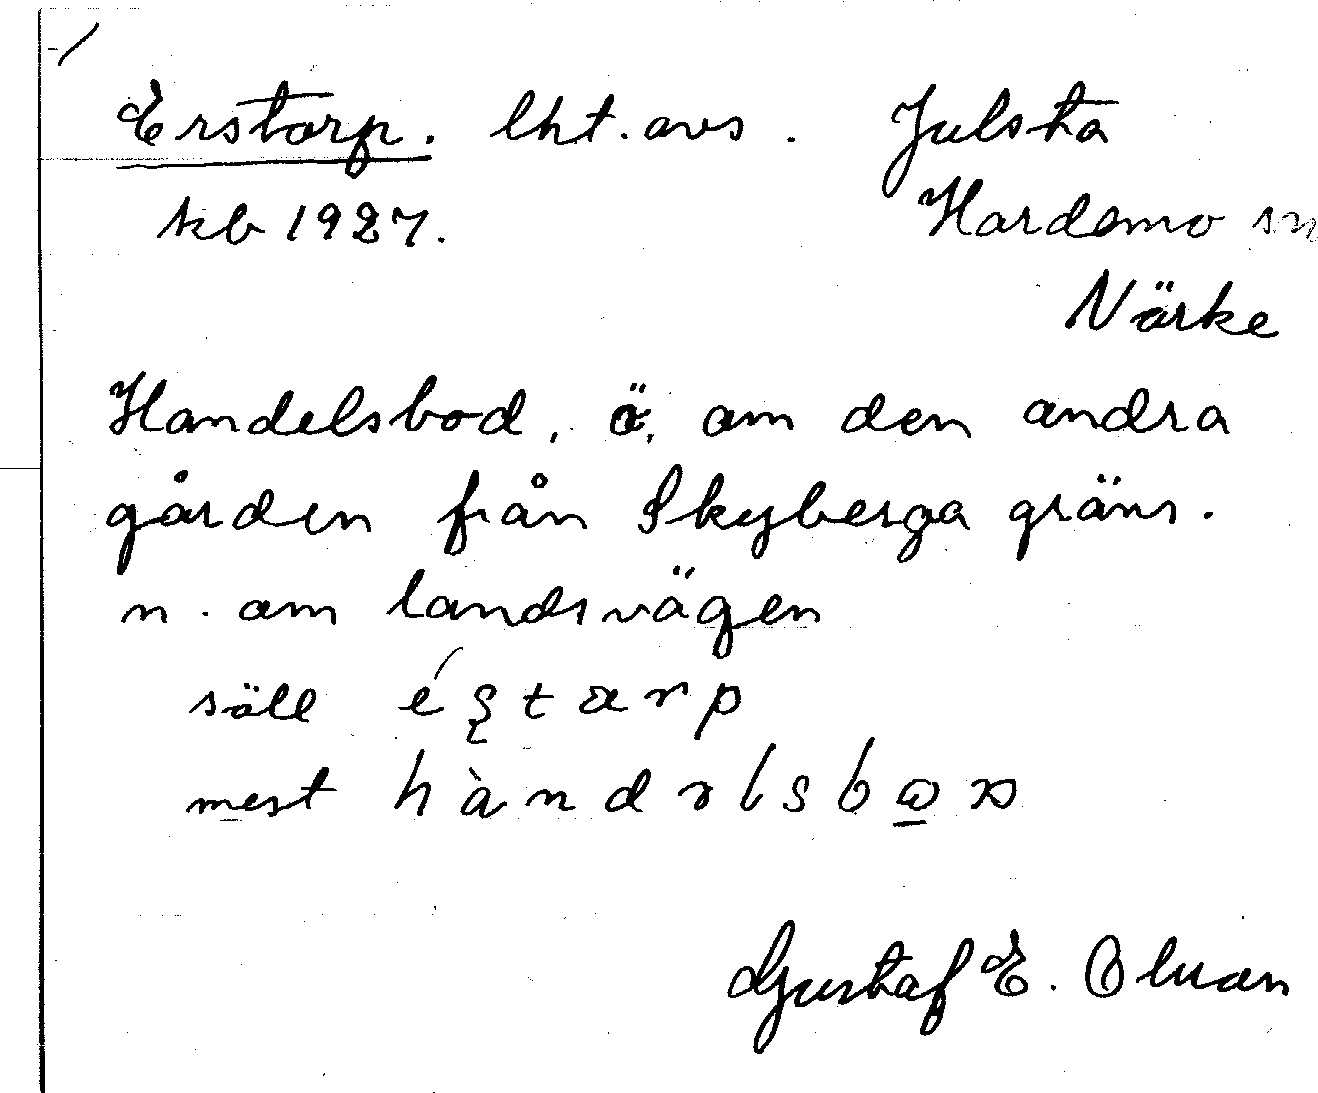 Erstorp. lht. avs. Julsta
kb 1927. Hardemo sn
Närke
Handelsbod, ö. om den andra
gården från Skyberga gräns.
n. om landsvägen
säll
mest
Gustaf E. Olsson